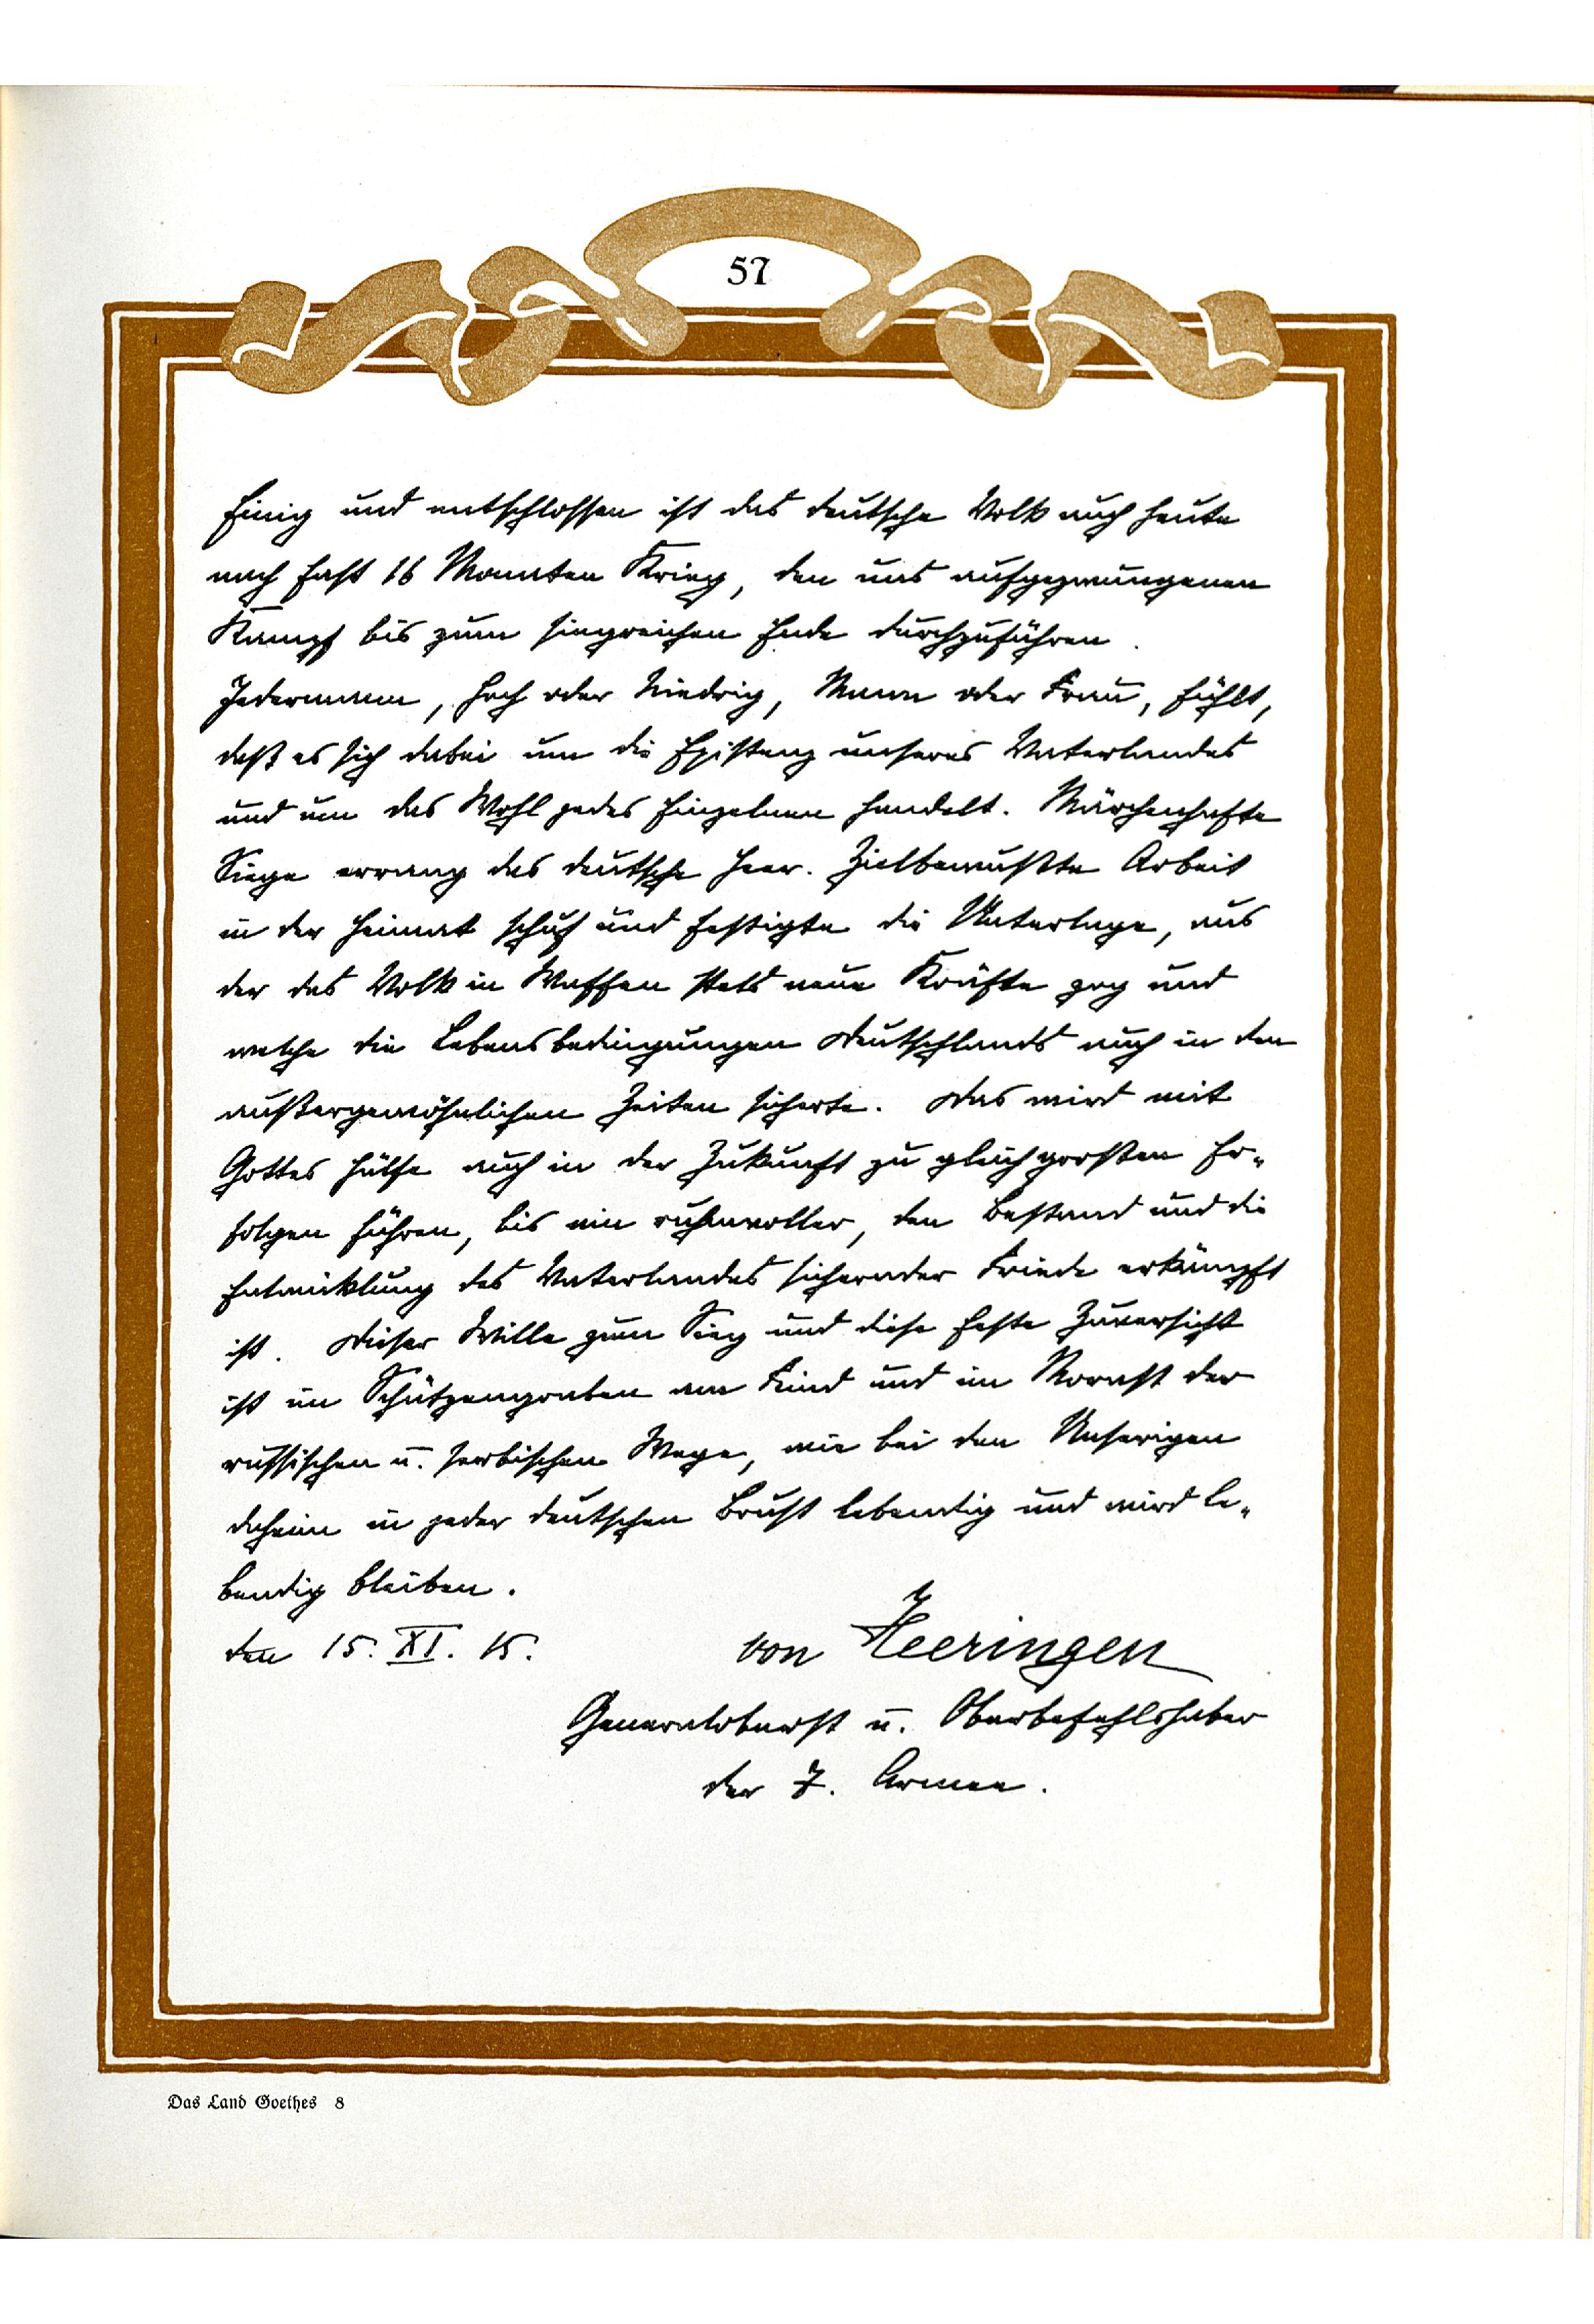 57
Einig und entschlossen ist das deutsche Volk auch heute
nach fast 16 Monaten Krieg, den uns aufgezwungenen
Kampf bis zum siegreichen Ende durchzuführen.
Jedermann, hoch oder niedrig, Mann oder Frau, fühlt,
daß es sich dabei um die Existenz unseres Vaterlandes
und um das Wohl jedes Einzelnen handelt. Märchenhafte
Siege errang das deutsche Heer. Zielbewußte Arbeit
in der Heimat schuf und festigte die Unterlage, aus
der das Volk in Waffen stets neue Kräfte zog und
welche die Lebensbedingungen Deutschlands auch in den
außergewöhnlichen Zeiten sicherte. Das wird mit
Gottes Hülfe auch in der Zukunft zu gleich großen Er-
folgen führen, bis ein ruhmvoller, den Bestand und die
Entwicklung des Vaterlandes sichernder Friede erkämpft
ist. Dieser Wille zum Sieg und diese feste Zuversicht
ist im Schützengraben am Feind und im Morast der
russischen u. serbischen Wege, wie bei den Unserigen
daheim in jeder deutschen Brust lebendig und wird le-
bendig bleiben.
den 15. XI. 15.
von Heeringen
Generaloberst u. Oberbefehlshaber
der 7. Armee.
Das Land Goethes 8